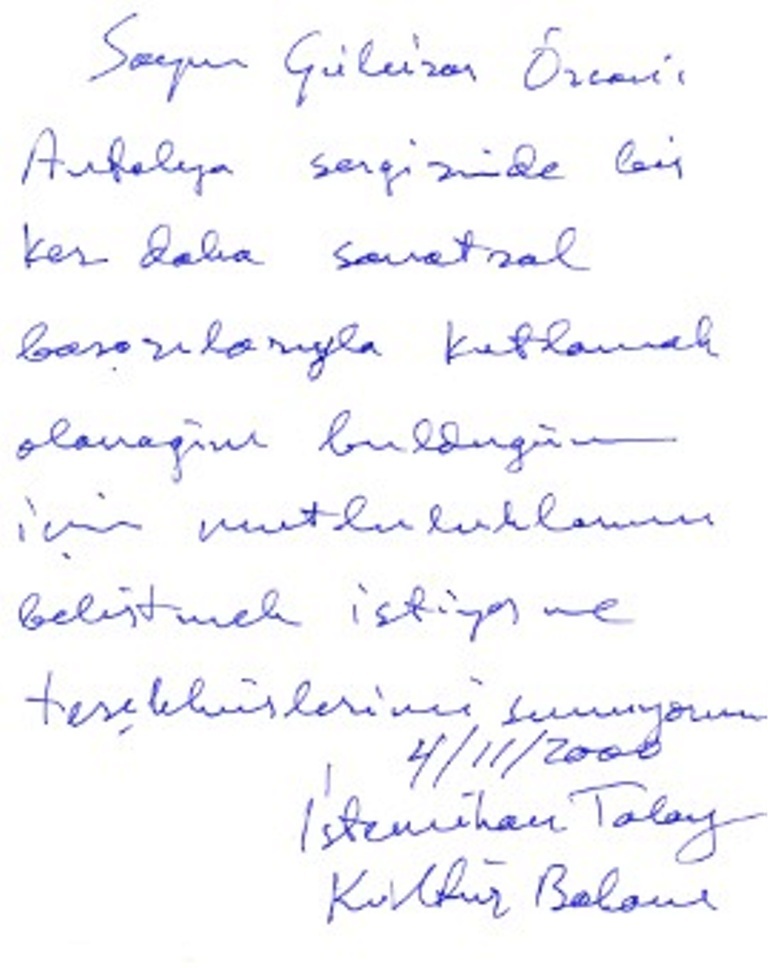 Sayın Gülnizar Özcan'ı
Antalya sergisinde bir
kez daha sanatsal
başarılarıyla kutlamak
olanağını bulduğum
için mutluluklarımı
belirtmek istiyor ve
teşekkürlerimi sunuyorum
4/11/2000
İstemihan Talay
Kültür Bakanı